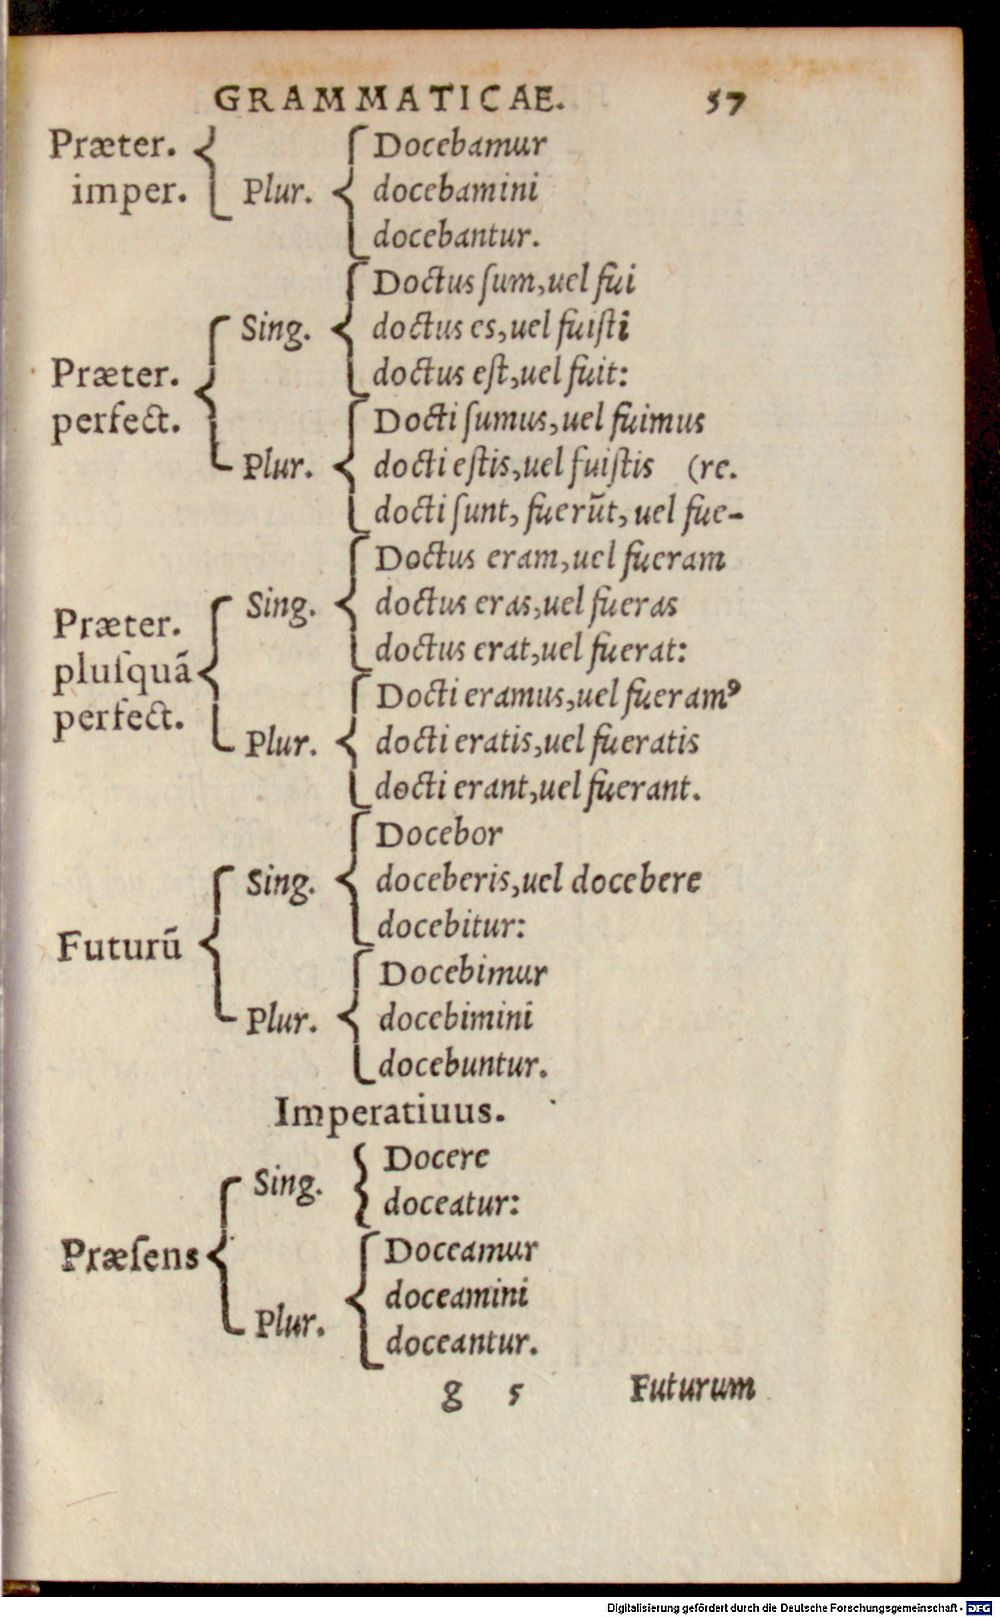 GRAMMATICAE. 57
Præter. Docebamur
imper. Plur. docebamini
docebantur.
Doctus ſum, uel fui
Sing. doctus es, uel fuiſti
Præter. doctus eſt, uel fuit:
perfect. Docti ſumus, uel fuimus
Plur. docti eſtis, uel fuiſtis (re.
docti ſunt, fuerūt, uel fue-
Doctus eram, uel fueram
Sing. doctus eras, uel fueras
Præter. doctus erat, uel fuerat:
pluſquā Docti eramus, uel fueramꝰ
perfect. Plur. docti eratis, uel fueratis
docti erant, uel fuerant.
Docebor
Sing. doceberis, uel docebere
docebitur:
Futurū Docebimur
Plur. docebimini
docebuntur.
Imperatiuus.
Docere
Sing. doceatur:
Præſens Doceamur
doceamini
Plur. doceantur.
g 5 Futurum
Digitalisierung gefördert durch die Deutsche Forschungsgemeinschaft - DFG